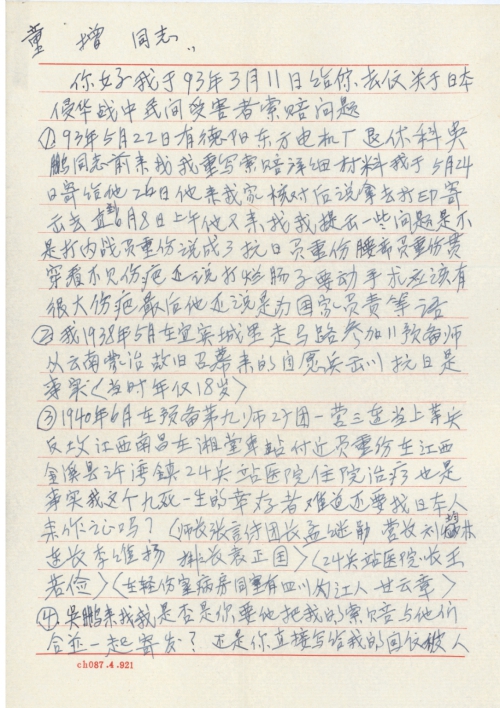 童增 同志：
你好我于93年3月11日给你去仪关于日本
侵华战中民间受害者索赔问题
①93年5月22日有德阳东方电机厂退休科吴
鹏同志前来我我重写索赔详细材料我于5月24
日寄给他26日他来我家核对后说拿去打印寄
出去 到6月8日上午他又来找我提出一些问题是不
是打内战负重伤说成了抗日负重伤腰部负重伤贯
穿看不见伤疤还说打烂肠子要动手术应该有
很大伤疤最后他还说是为国家负责等话
②我1938年5月在宜宾城里走马路参加川预备师
从云南 故旧召募来的自愿兵出川抗日是
事实〈当时年仅18岁〉
③1940年6月在预备第九师27团一营三连当上等兵
反攻江西南昌在湘堂车站付近负重伤在江西
金溪县许湾镇24兵站医院住院治疗也是
事实我这个九死一生的幸存者难道还要找日本人
来作证吗？〈师长张言传团长孟继 营长刘 林
连长李维扬 排长袁正国〉〈24兵站医院 长王
若俭〉〈在轻伤室病房同室有四川内江人 云章〉
④吴鹏来找我是否是你要他把我的索赔与他们
合并一起寄发？还是你直接写给我的回仪被人
ch087.4.921